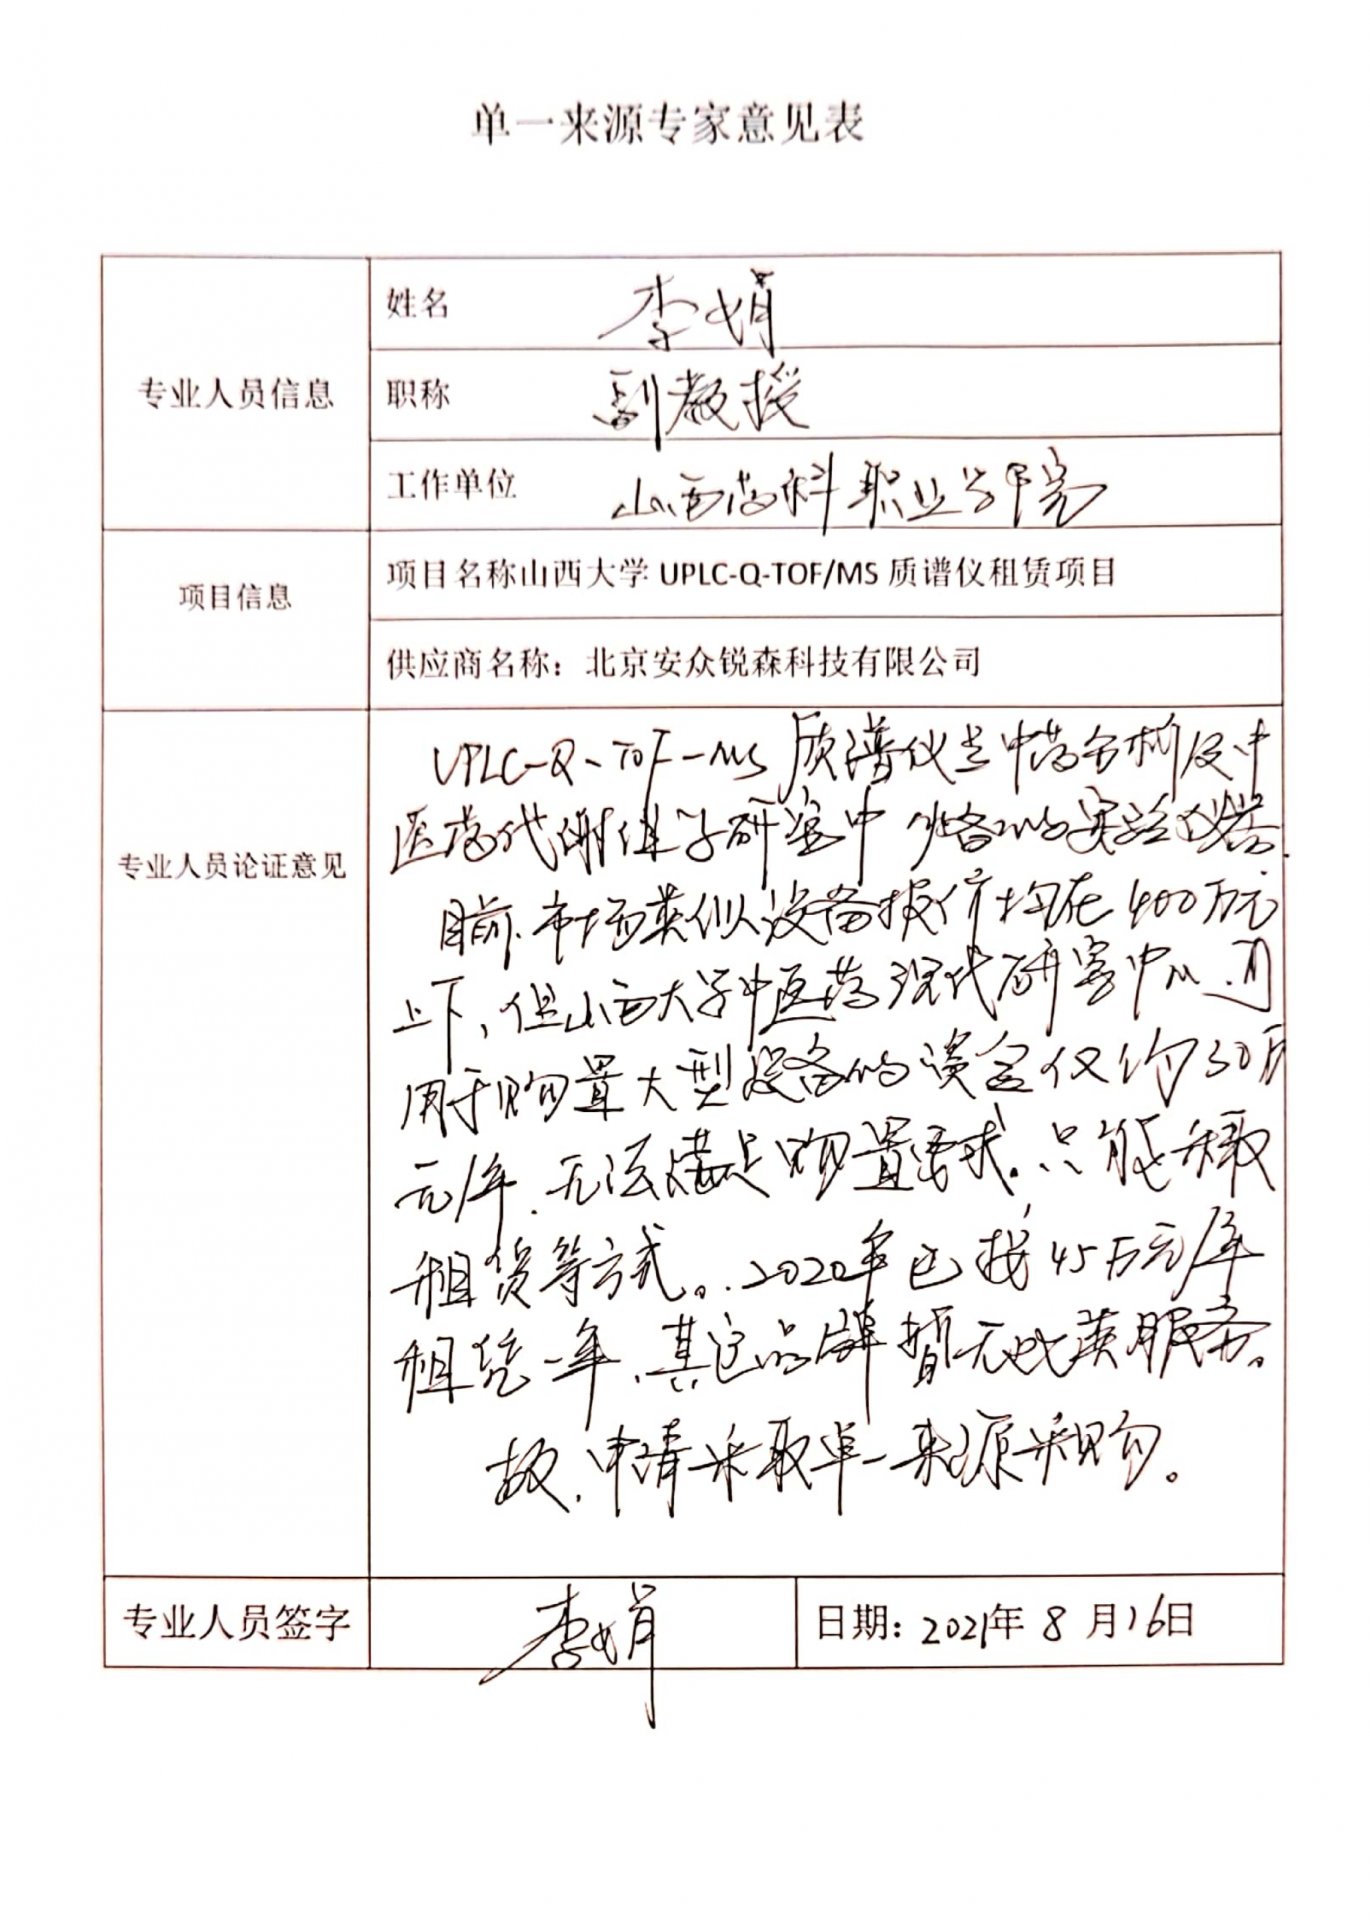 单一来源专家意见表
专业人员信息
姓名 李娟
职称 副教授
工作单位 山西药科职业学院
项目信息
项目名称山西大学 UPLC-Q-TOF/MS 质谱仪租赁项目
供应商名称：北京安众锐森科技有限公司
专业人员论证意见
UPLC-Q-TOF-MS 质谱仪是中药分析及中
医药代谢组学研究中必备的实验仪器.
目前.市场类似设备报价均在400万元
上下,但山西大学中医药现代研究中心,可
用于购置大型设备的资金仅约30万
元/年.无法满足购置需求.只能采取
租赁等方式。2020年已按45万元/年
租凭一年,其它品牌暂无此类服务。
故,申请采取单一来源采购。
专业人员签字 李娟 日期：2021年 8 月16日